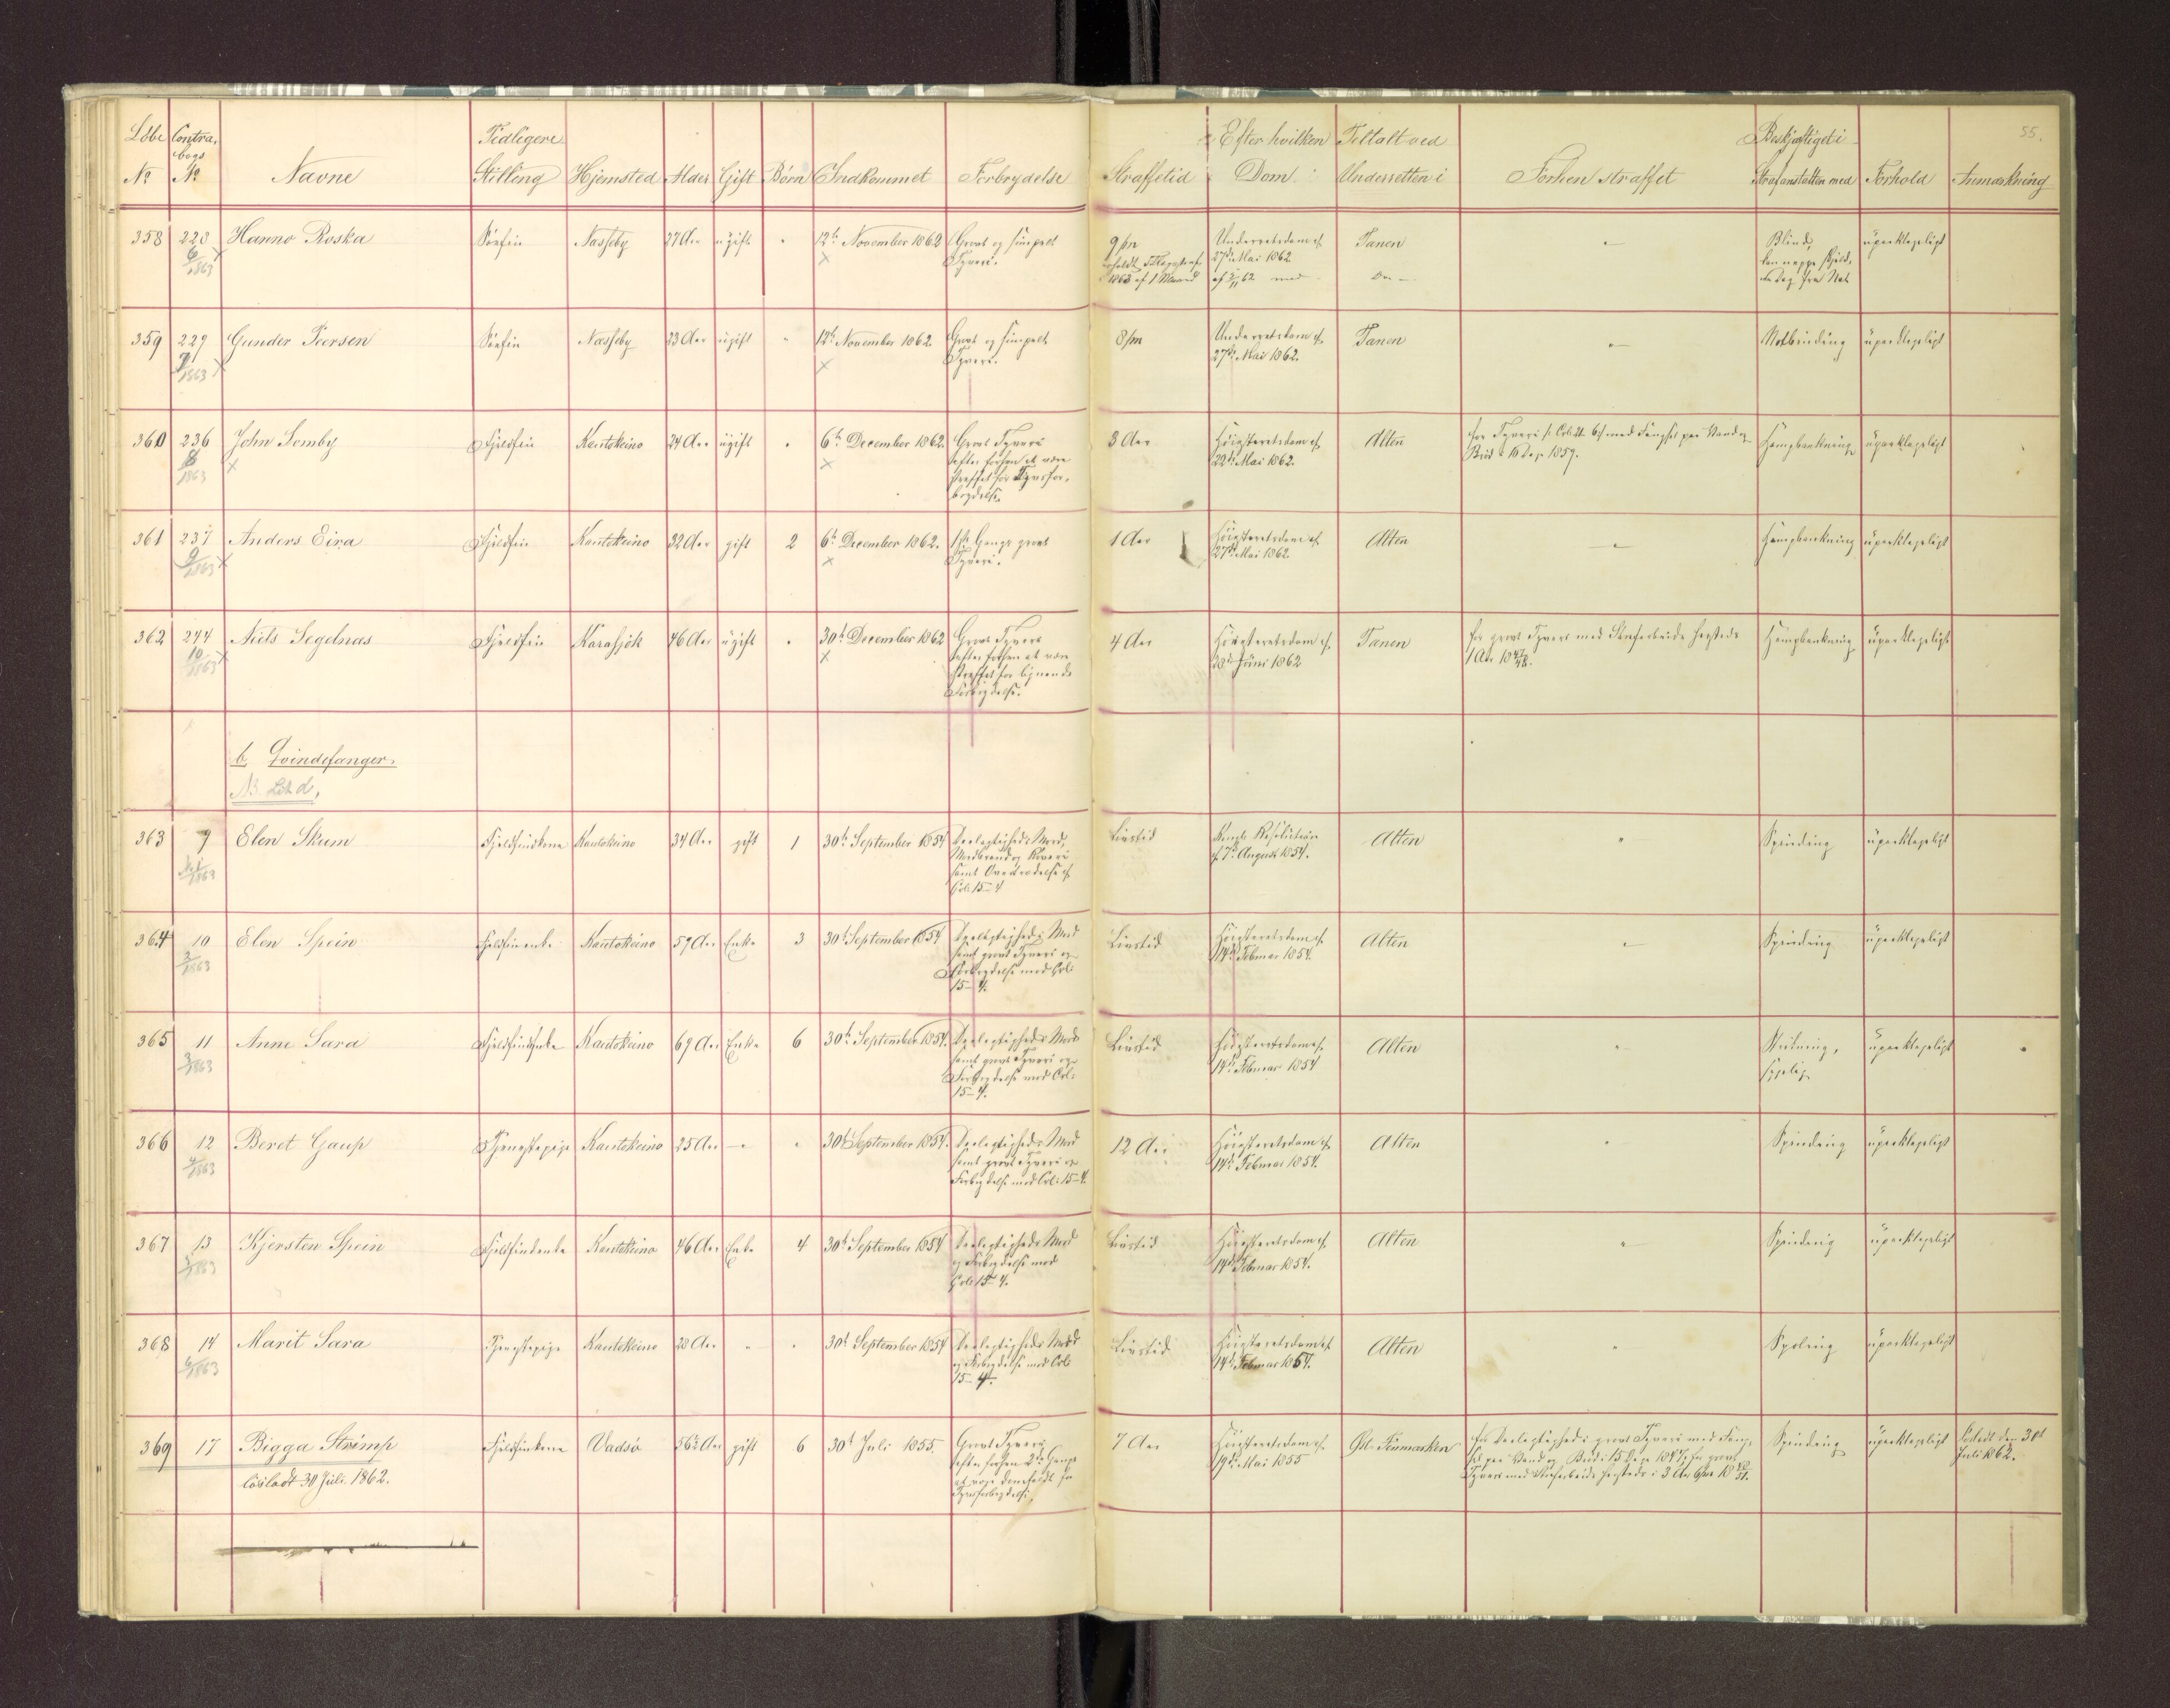 55.
Løbe No Contrabogs No Navne Tidligere Stilling Hjemsted Alder Gift Børn Indkommet Forbrydelse Straffetid Efter hvilken Dom Tiltalt ved Underretten i Forhen straffet Beskjæftiget i Strafanstalten med Forhold Anmærkning
358 228 Hanno Roska Søefin Næsseby 27 Aar ugift " 12te November 1862 Grovt og simpelt Tyveri. 9 mr Underretsdom af 27de Mai 1862 Tanen " Blind, upaaklageligt
6/1863
359 229 Gunder Peersen Søefin Næsseby 23 Aar ugift " 12te November 1862. Grovt og simpelt Tyveri. 8/m Underretsdom af 27de Mai 1862. Tanen " Notbinding upaaklageligt
7/1863
360 236 John Somby Fjeldfin Kautokeino 24 Aar ugift " 6te December 1862. Grovt Tyveri efter forhen at være straffet for Tyvsforbrydelse. 3 Aar Høiesteretsdom af 22de Mai 1862. Alten for Tyveri med Fængsel paa Vand og Brød 10 Dage 1859. Hampbankning upaaklageligt
8/1863
361 237 Anders Eira Fjeldfin Kautokeino 32 Aar gift 2 6te December 1862. 1ste Gang grovt Tyveri. 1 Aar Høiesteretsdom af 27de Mai 1862. Alten " Hampbankning upaaklageligt
9/1863
362 244 Niels Segelnæs Fjeldfin Karasjok 46 Aar ugift " 30te December 1862 Grovt Tyveri efter forhen at være straffet for lignende Forbrydelse. 4 Aar Høiesteretsdom af 28de Juni 1862 Tanen for grovt Tyveri med Strafarbeide hersteds 1 Aar 1847/48. Hampbankning upaaklageligt
10/1863
b. Qvindefanger.
NB. Lit d,
363 9 Elen Skum Fjeldfindkone Kautokeino 34 Aar gift 1 30te September 1854 Deelagtighed i Mord, Mordbrand og Røveri samt Overtrædelse af Crl: 15–4 Livstid Kongl. Resolution af 7de August 1854. Alten " Spinding upaaklageligt
1/1863
364 10 Elen Spein Fjeldfinenke Kautokeino 59 Aar Enke 3 30te September 1854 Deelagtighed i Mord samt grovt Tyveri og Forbrydelse mod Crl: 15–4. Livstid Høiesteretsdom af 14de Februar 1854. Alten " Spinding upaaklageligt
2/1863
365 11 Anne Sara Fjeldfindenke Kautokeino 69 Aar Enke 6 30te September 1854. Deelagtighed i Mord samt grovt Tyveri og Forbrydelse mod Crl: 15–4. Livstid Høiesteretsdom af 14de Februar 1854 Alten " sygelig upaaklageligt
3/1863
366 12 Beret Gaup Tjenestepige Kautokeino 25 Aar " " 30te September 1854. Deelagtighed i Mord samt grovt Tyveri og Forbrydelse mod Crl: 15–4. 12 Aar Høiesteretsdom af 14de Februar 1854. Alten " Spinding upaaklageligt
4/1863
367 13 Kjersten Spein Fjeldfindenke Kautokeino 46 Aar Enke 4 30te September 1854 Deelagtighed i Mord og Forbrydelse mod Crl: 15–4. Livstid Høiesteretsdom af 14de Februar 1854. Alten " Spinding upaaklageligt
5/1863
368 14 Marit Sara Tjenestepige Kautokeino 28 Aar " " 30te September 1854 Deelagtighed i Mord og Forbrydelse mod Crl: 15–4. Livstid Høiesteretsdom af 14de Februar 1854. Alten " Spoling upaaklageligt
6/1863
369 17 Bigga Strimp Fjeldfinkone Vadsö 56 Aar gift 6 30te Juli 1855. Grovt Tyveri efter forhen 2de Gange at være domfældt for Tyvsforbrydelse. 7 Aar Høiesteretsdom af 19de Mai 1855 Øst-Finmarken for Deelagtighed i grovt Tyveri med Fængsel paa Vand og Brød i 15 Dage 1847, for grovt Tyveri med Strafarbeide hersteds i 3 Aar Spinding upaaklageligt Løsladt den 30te Juli 1862.
lösladt 30 Juli 1862.